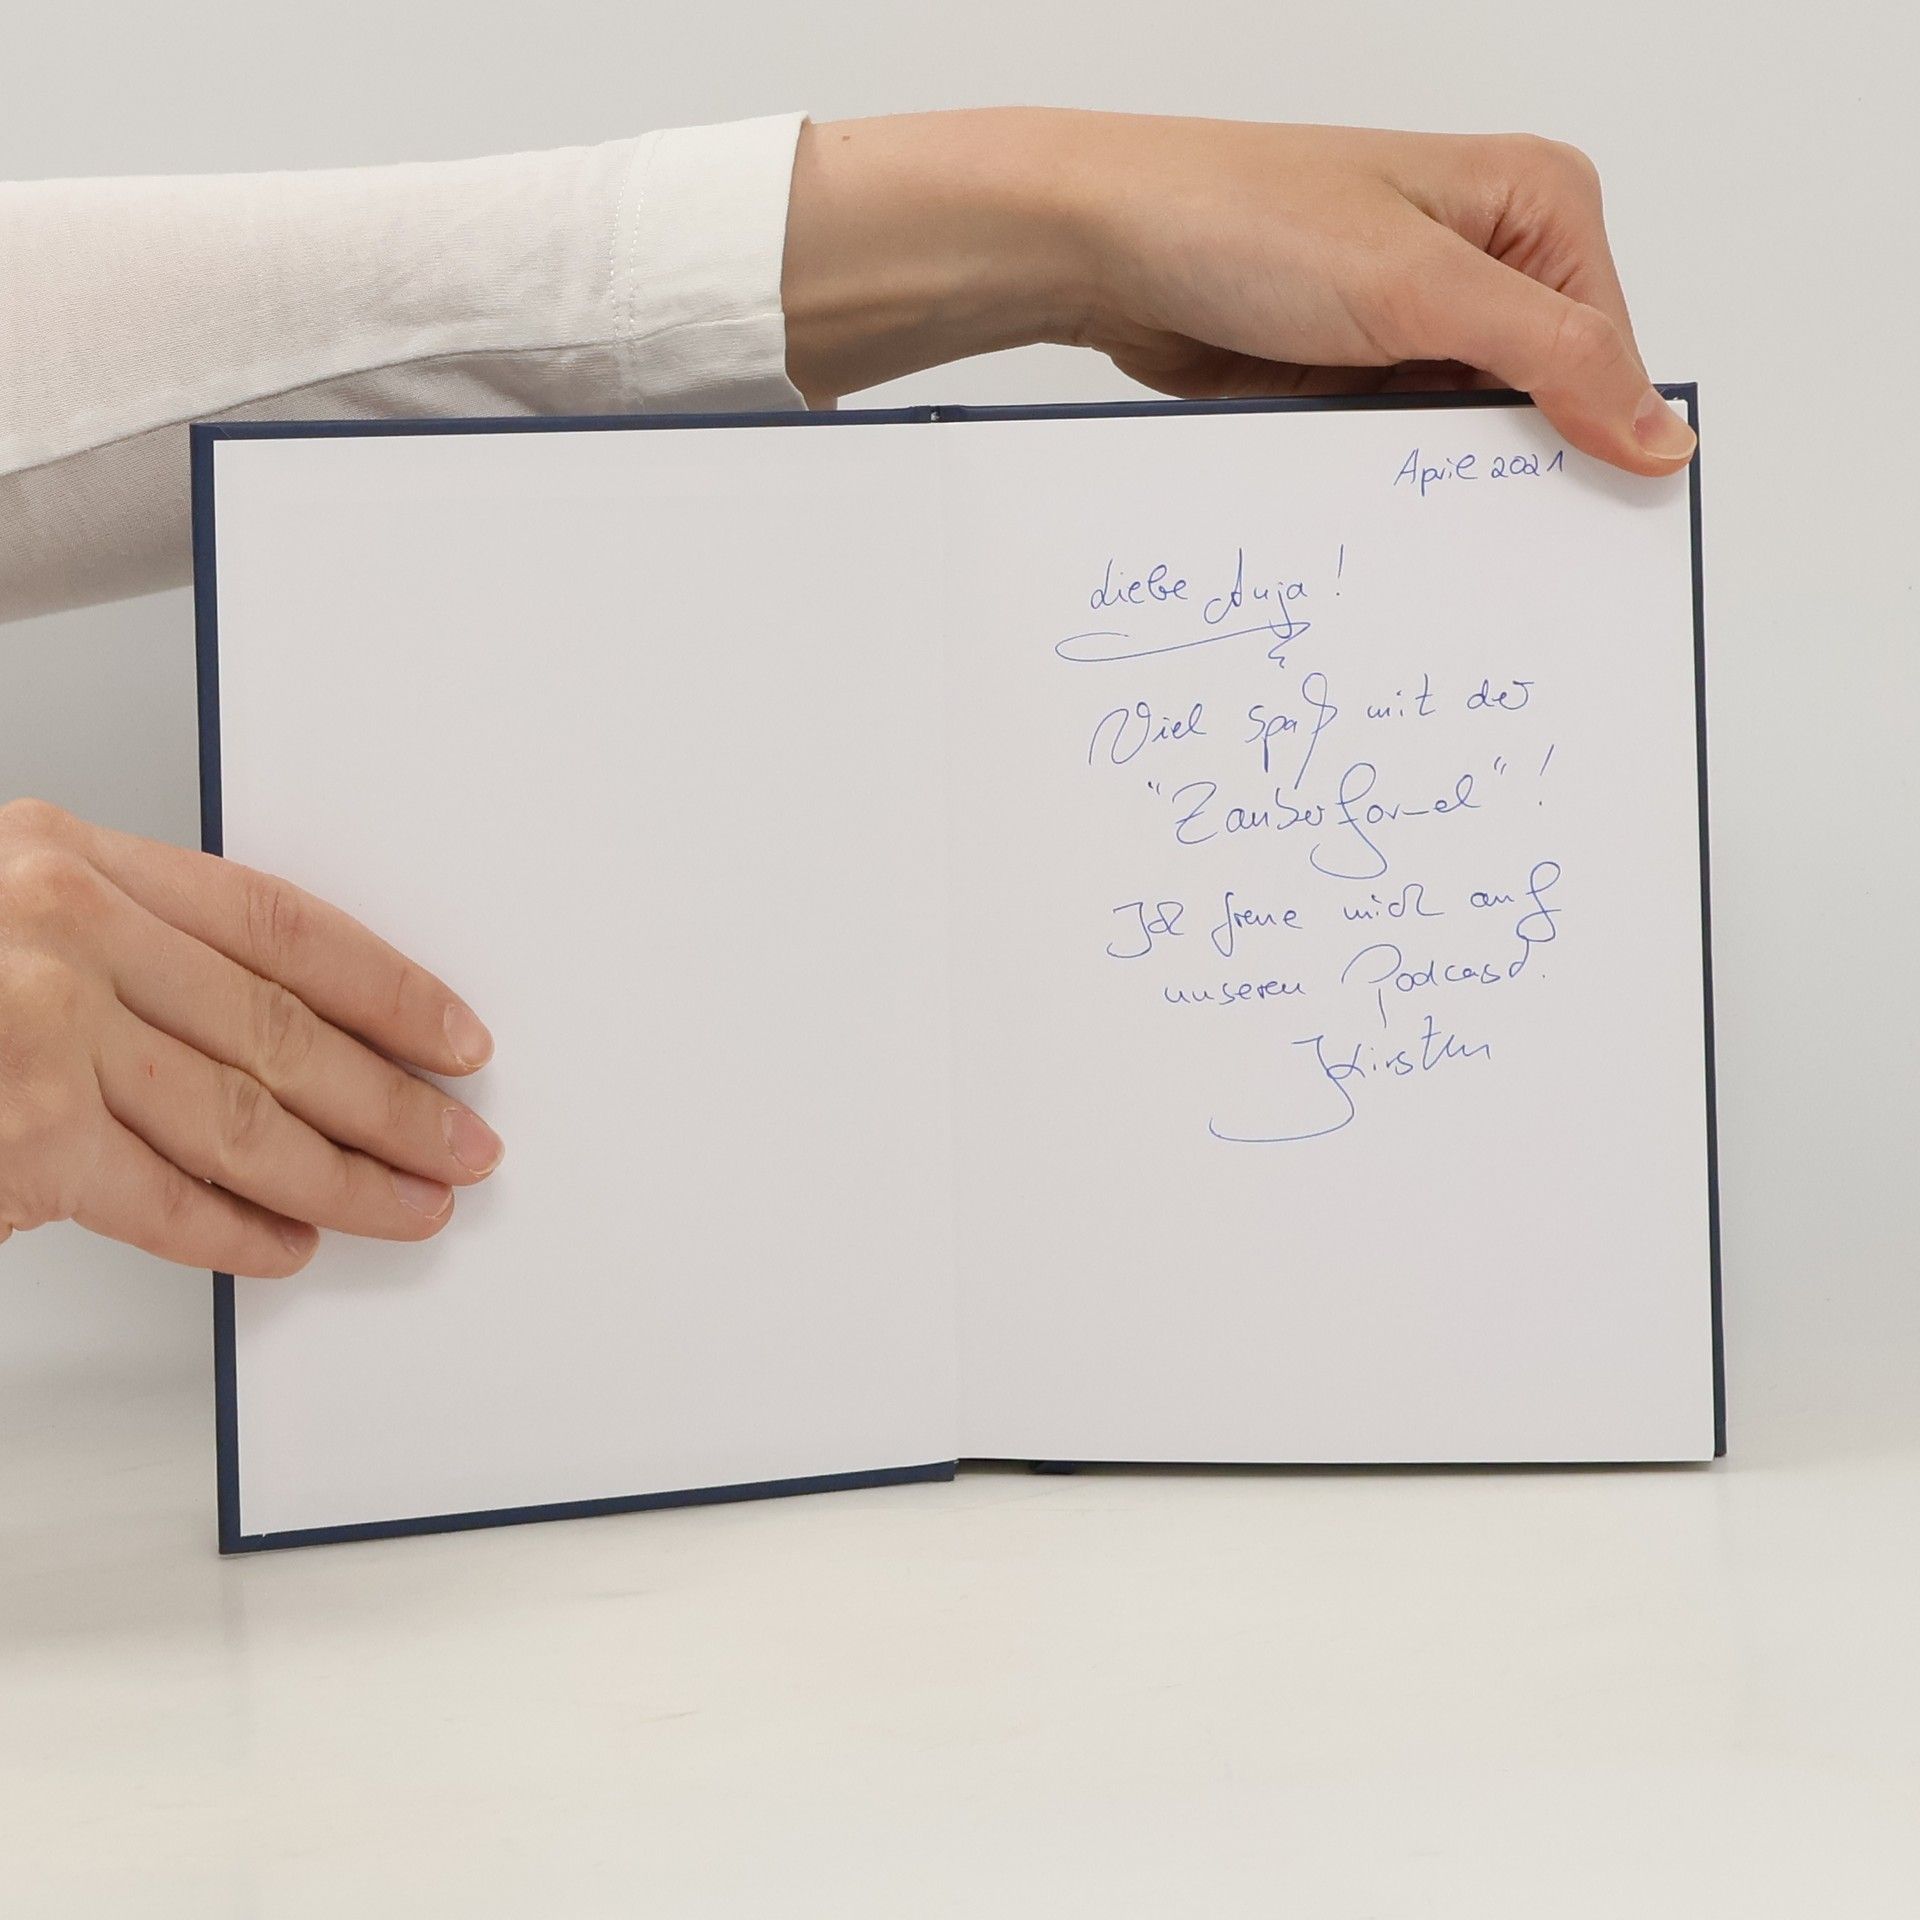 April 2021
Liebe Anja!
Viel Spaß mit der
"Zauberformel"!
Ich freue mich auf
unseren Podcast.
Kirsten